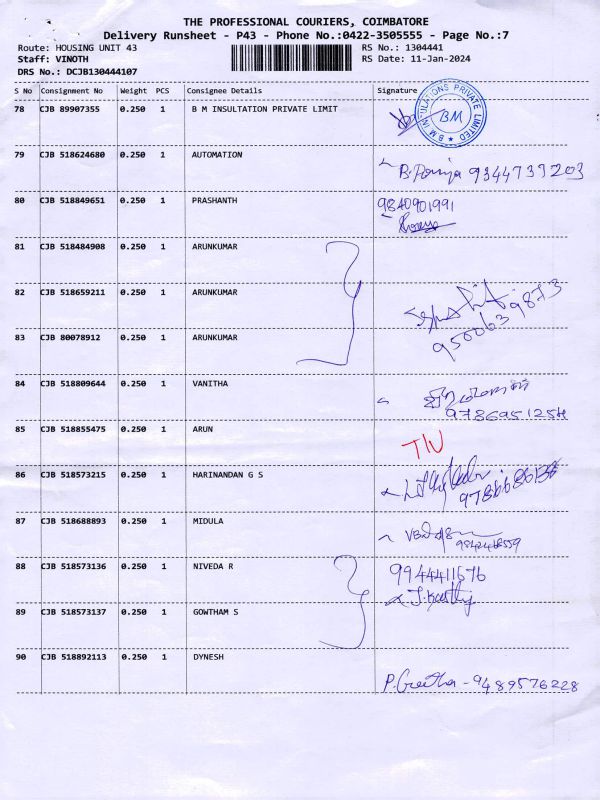 THE PROFESSIONAL COURIERS, COIMBATORE
Delivery Runsheet - P43 - Phone No.:0422-3505555 - Page No.:7
Route: HOUSING UNIT 43 RS No.: 1304441
Staff: VINOTH RS Date: 11-Jan-2024
DRS No.: DCJB130444107
S No Consignment No Weight PCS Consignee Details Signature
78 CJB 89907355 0.250 1 B M INSULTATION PRIVATE LIMIT
B M INSULATIONS PRIVATE LIMITED
BM
79 CJB 518624680 0.250 1 AUTOMATION
9344739203
80 CJB 518849651 0.250 1 PRASHANTH 9840901991
81 CJB 518484908 0.250 1 ARUNKUMAR
82 CJB 518659211 0.250 1 ARUNKUMAR
9500639873
83 CJB 80078912 0.250 1 ARUNKUMAR
84 CJB 518809644 0.250 1 VANITHA
9786951254
85 CJB 518855475 0.250 1 ARUN
86 CJB 518573215 0.250 1 HARINANDAN G S
87 CJB 518688893 0.250 1 MIDULA
88 CJB 518573136 0.250 1 NIVEDA R 9944411676
89 CJB 518573137 0.250 1 GOWTHAM S
90 CJB 518892113 0.250 1 DYNESH
P. Geetha - 9489576228